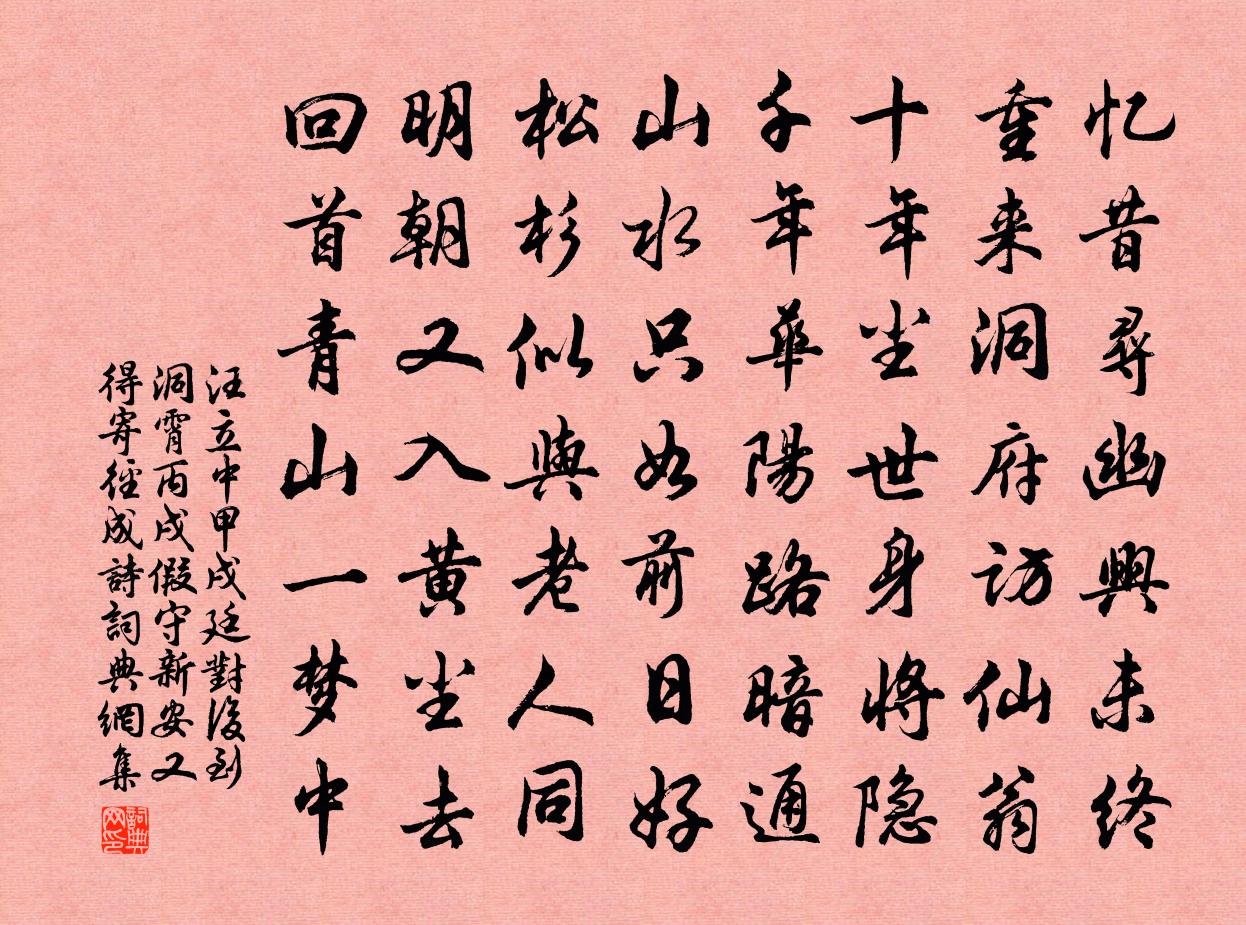 忆昔尋幽興未终
重来洞府访仙翁
十年尘世身将隐
千年華陽路暗通
山水只如前日好
松杉似與老人同
明朝又入黄尘去
回首青山一梦中
汪立中甲戌廷對後到
洞霄丙戌假守新安又
得寄徑成詩詞典網集
詞典
网印